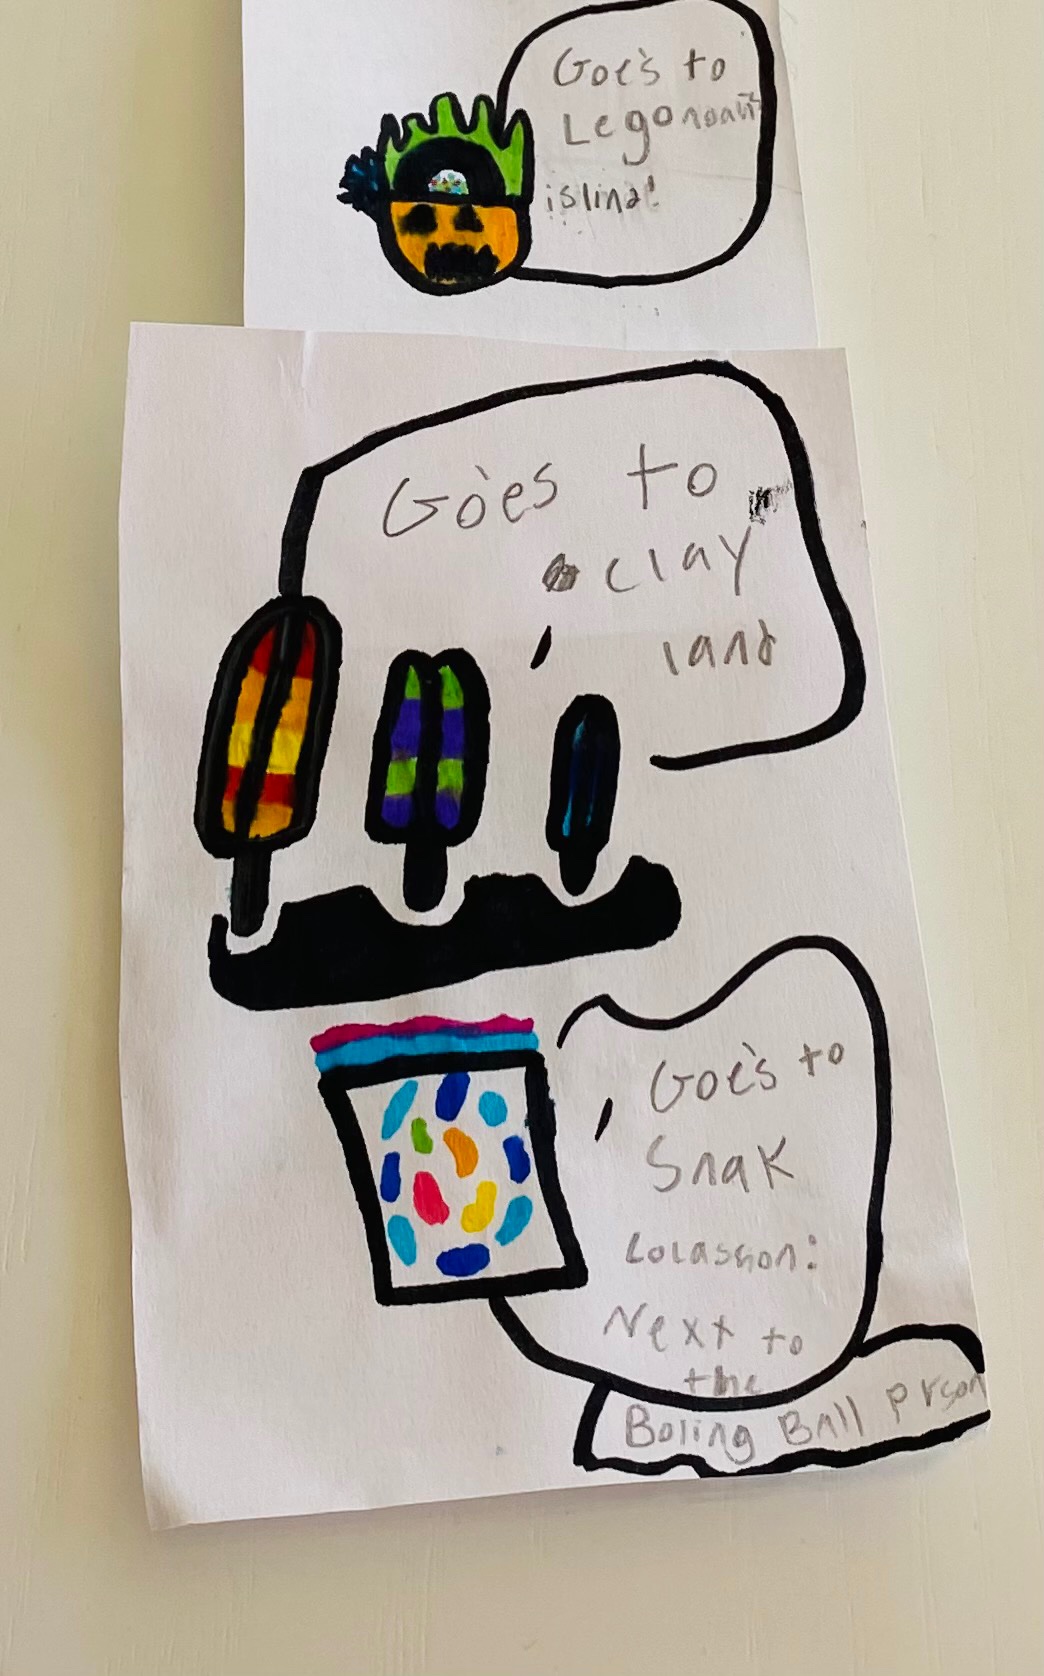 Goe's to
Lego
islina!
Goe's to
clay
land
Goe's to
Snak
Locasson:
Next to
the
Boling Ball prson